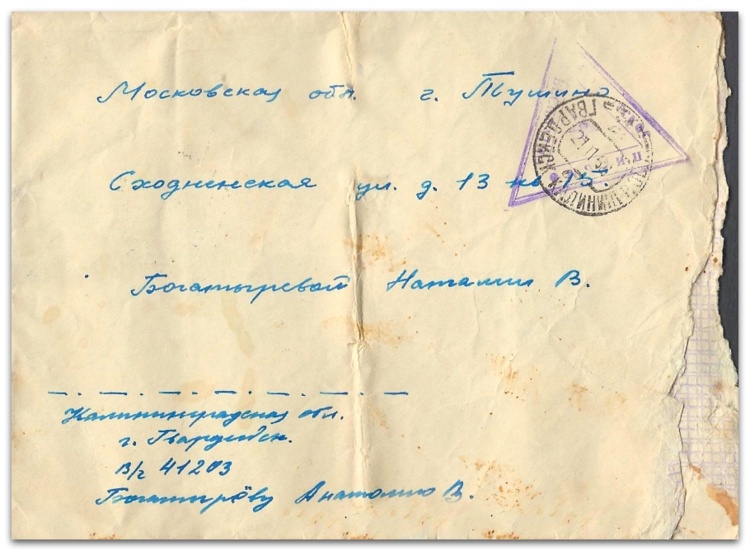 Московская обл. г. Тушино
Сходненская ул. д. 13 кв 15
Богатыревой Наталии В.
Калининградская обл.
г. Гвардейск.
в/ч 41203
Богатырёву Анатолию В.
ГВАРДЕЙСК